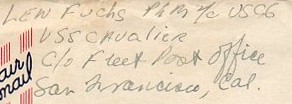 Lew Fuchs PhM 1/c USCG
USS Cavalier
C/o Fleet Post Office
San Francisco, Cal.
air
mail